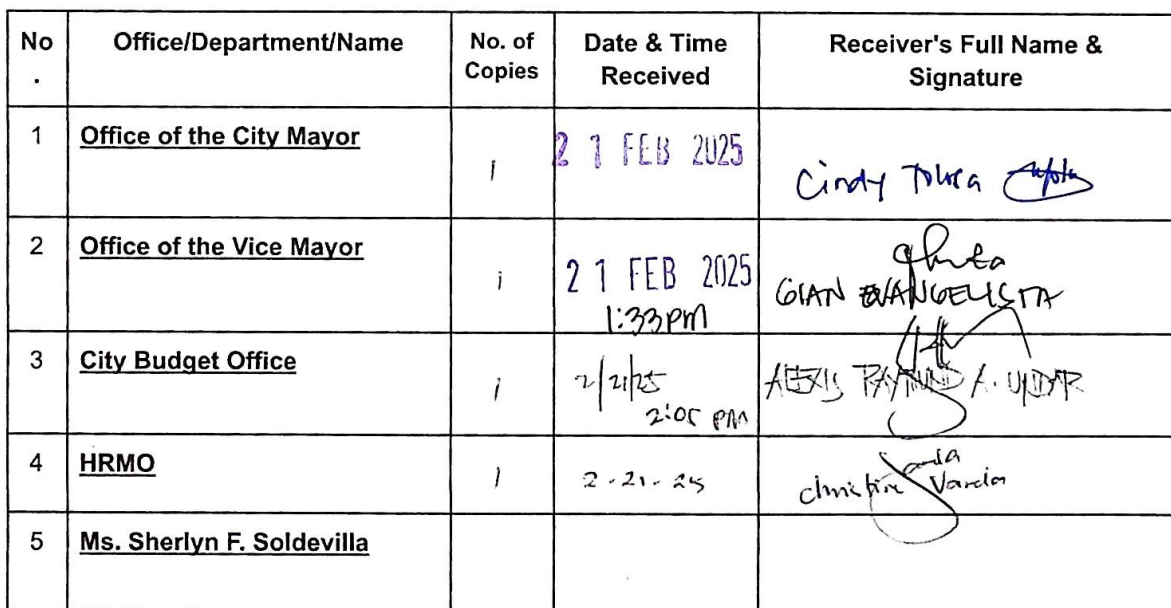 No. Office/Department/Name No. of Copies Date & Time Received Receiver's Full Name & Signature
1 Office of the City Mayor 1 21 FEB 2025 Cindy
2 Office of the Vice Mayor 1 21 FEB 2025 1:33pm GIAN EVANGELISTA
3 City Budget Office 1 2/21/25 2:05 PM ALEXIS RAYMUND A.
4 HRMO 1 2-21-25 christine
5 Ms. Sherlyn F. Soldevilla